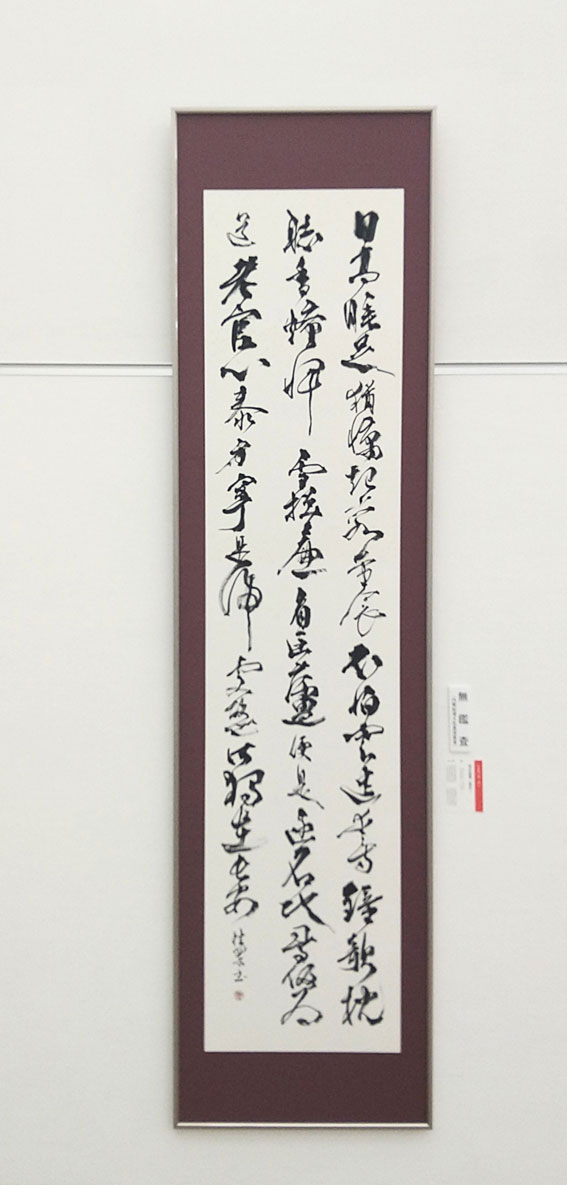 日高睡足猶慵起小閣重衾不怕寒遺愛寺鐘欹枕
聴香爐峰雪撥簾看匡廬便是逃名地司馬仍為
送老官心泰身寧是帰処故郷何獨在長安
無鑑査